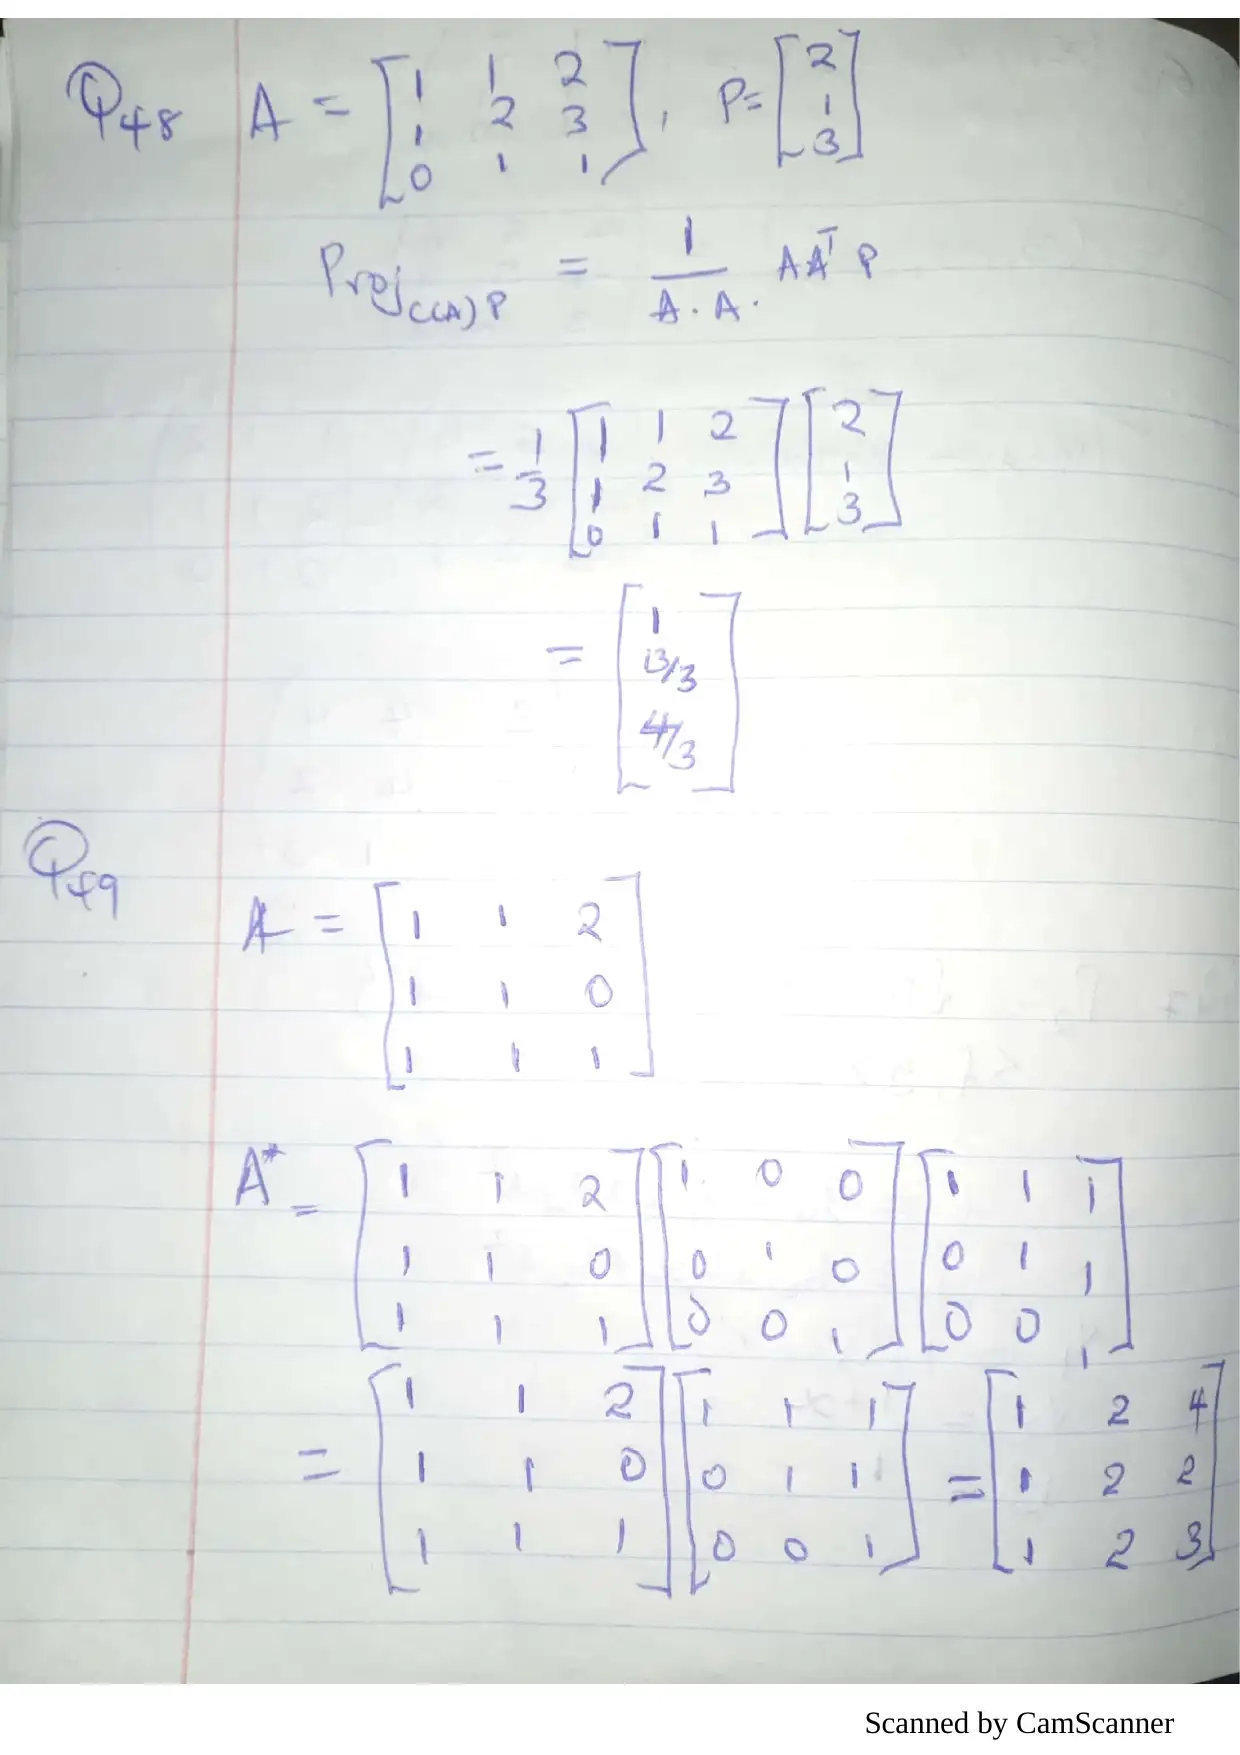 Q48 A = [1 1 2
1 2 3
0 1 1], P = [2
1
3]
Proj C(A) P = 1/(A . A .) A A^T P
= 1/3 [1 1 2
1 2 3
0 1 1] [2
1
3]
= [1
13/3
4/3]
Q49
A = [1 1 2
1 1 0
1 1 1]
A* = [1 1 2 [1 0 0 [1 1 1
1 1 0 0 1 0 0 1 1
1 1 1] 0 0 1] 0 0 1]
= [1 1 2 [1 1 1 = [1 2 4
1 1 0 0 1 1 1 2 2
1 1 1] 0 0 1] 1 2 3]
Scanned by CamScanner